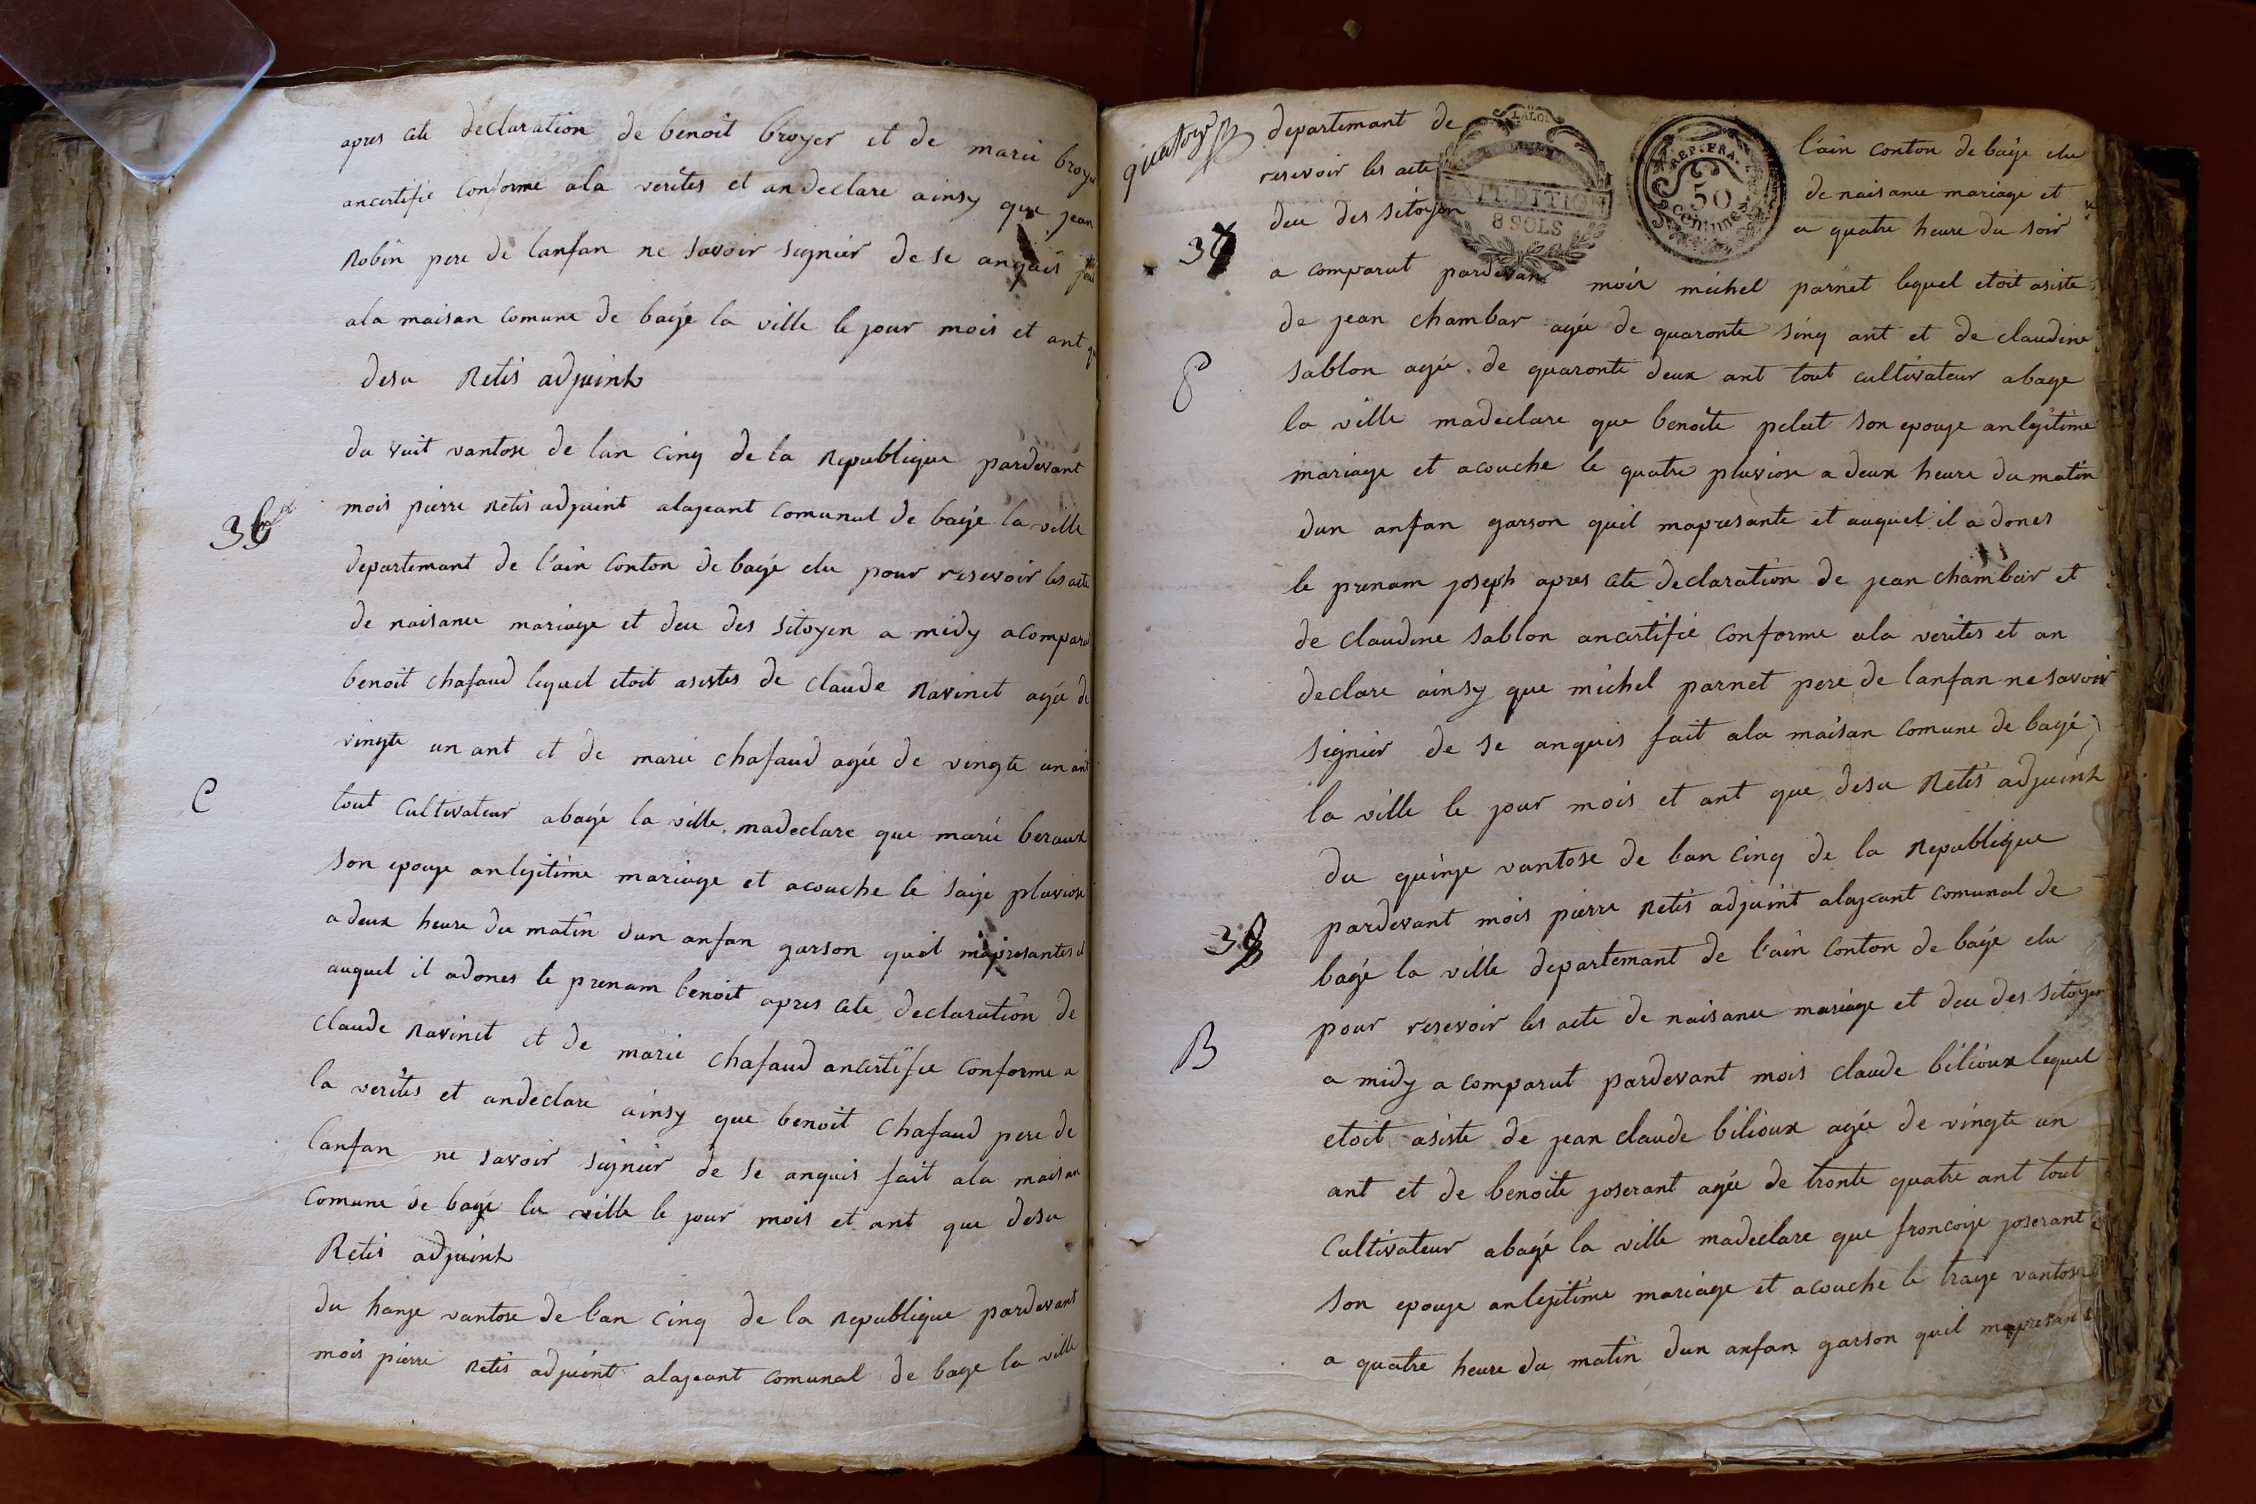 apres cete declaration de benoit broyer et de marie broyer
ancertifie conforme ala verites et andeclare ainsy que jean
Robin pere de lanfan ne savoir signier de se anquis
ala maison comune de bagé la ville le jour mois et ant
desu Retis adjuint
du vuit vantose de lan cinq de la Republique pardevant
36
mois pierre Retis adjuint alajeant comunal de bagé la ville
departemant de l'ain conton de bagé elu pour resevoir les acte
de naisance mariage et dece des sitoyen a midy acomparut
benoit chafaud lequel etoit asistes de claude Ravinet agée de
vingte un ant et de marie chafaud agée de vingte un ant
C
tout cultivateur abagé la ville madeclare que marie beraux
son epouze anlegitime mariage et acouche le saize pluviose
a deux heure du matin dun anfan garson quil mapresantes et
auquel il adones le prenam benoit apres cete declaration de
claude Ravinet et de marie chafaud ancertifie conforme a
la verites et andeclare ainsy que benoit chafaud pere de
lanfan ne savoir signier de se anquis fait ala maisan
comune de bagé la ville le jour mois et ant que desu
Retis adjuint
du hanze vantose de lan cinq de la Republique pardevant
mois pierre Retis adjuint alajeant comunal de bage la ville
quatorze
departemant de l'ain conton de bagé elu
resevoir les acte de naisance mariage et
dece des sitoyen a quatre heure du soir
LALOI
EXPEDITION
8 SOLS
REP. FRA.
50
centimes
37
a comparut pardevant mois michel parnet lequel etoit asiste
de jean chambar agée de quaronte sinq ant et de claudine
P
sablon agée de quaronte deux ant tout cultivateur abage
la ville madeclare que benoite pelut son epouze anlegitime
mariage et acouche le quatre pluviose a deux heure du matin
dun anfan garson quil mapresante et auquel il a dones
le prenam joseph apres cete declaration de jean chambar et
de claudine sablon ancertifie conforme ala verites et an
declare ainsy que michel parnet pere de lanfan ne savoir
signier de se anquis fait ala maisan comune de bagé
la ville le jour mois et ant que desu Retis adjuint
du quinze vantose de lan cinq de la Republique
38
pardevant mois pierre Retis adjuint alajeant comunal de
bagé la ville departemant de l'ain conton de bagé elu
pour resevoir les acte de naisance mariage et dece des sitoyen
B
a midy a comparut pardevant mois claude bilioux lequel
etoit asiste de jean claude bilioux agée de vingte un
ant et de benoite joserant agée de tronte quatre ant tout
cultivateur abagé la ville madeclare que froncoize joserant
son epouze anlegitime mariage et acouche le traize vantose
a quatre heure du matin dun anfan garson quil mapresante